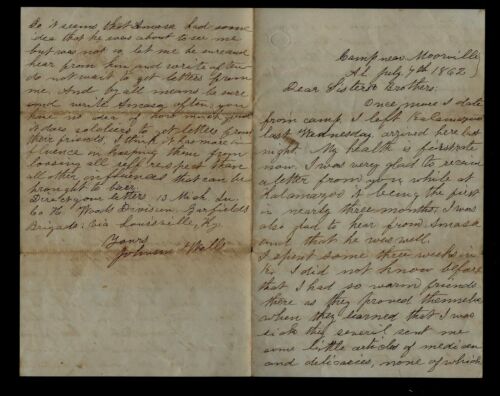 Camp near Mooresville
Al July 9th 1862
Dear Sister & Brothers
Once more I date
from camp. I left Kalamazoo
last Wednesday, arrived here last
night. My health is first rate
now. I was very glad to receive
a letter from you while at
Kalamazoo it being the first
in nearly three months. I was
also glad to hear from Amasa
and that he was well.
I spent some three weeks in
K. I did not know before
that I had so warm friends
there as they proved themselves
when they learned that I was
sick they several sent me
some little articles of medicine
and delicacies, none of which
So it seems that Amasa had some
idea that he was about to see me
but was not so let me be sure and
hear from him and write often
do not wait to get letters from
me. And by all means be sure
and write Amasa often, you
have no idea of how much good
it does soldiers to get letters from
their friends, I think it has more in
fluence in keeping them from
loosing all self respect than
all other influences that can be
brought to bear.
Direct your letters 13 Mich Inf
Co H Woods Division Garfields
Brigade Via Louisville, Ky
Yours
Wells